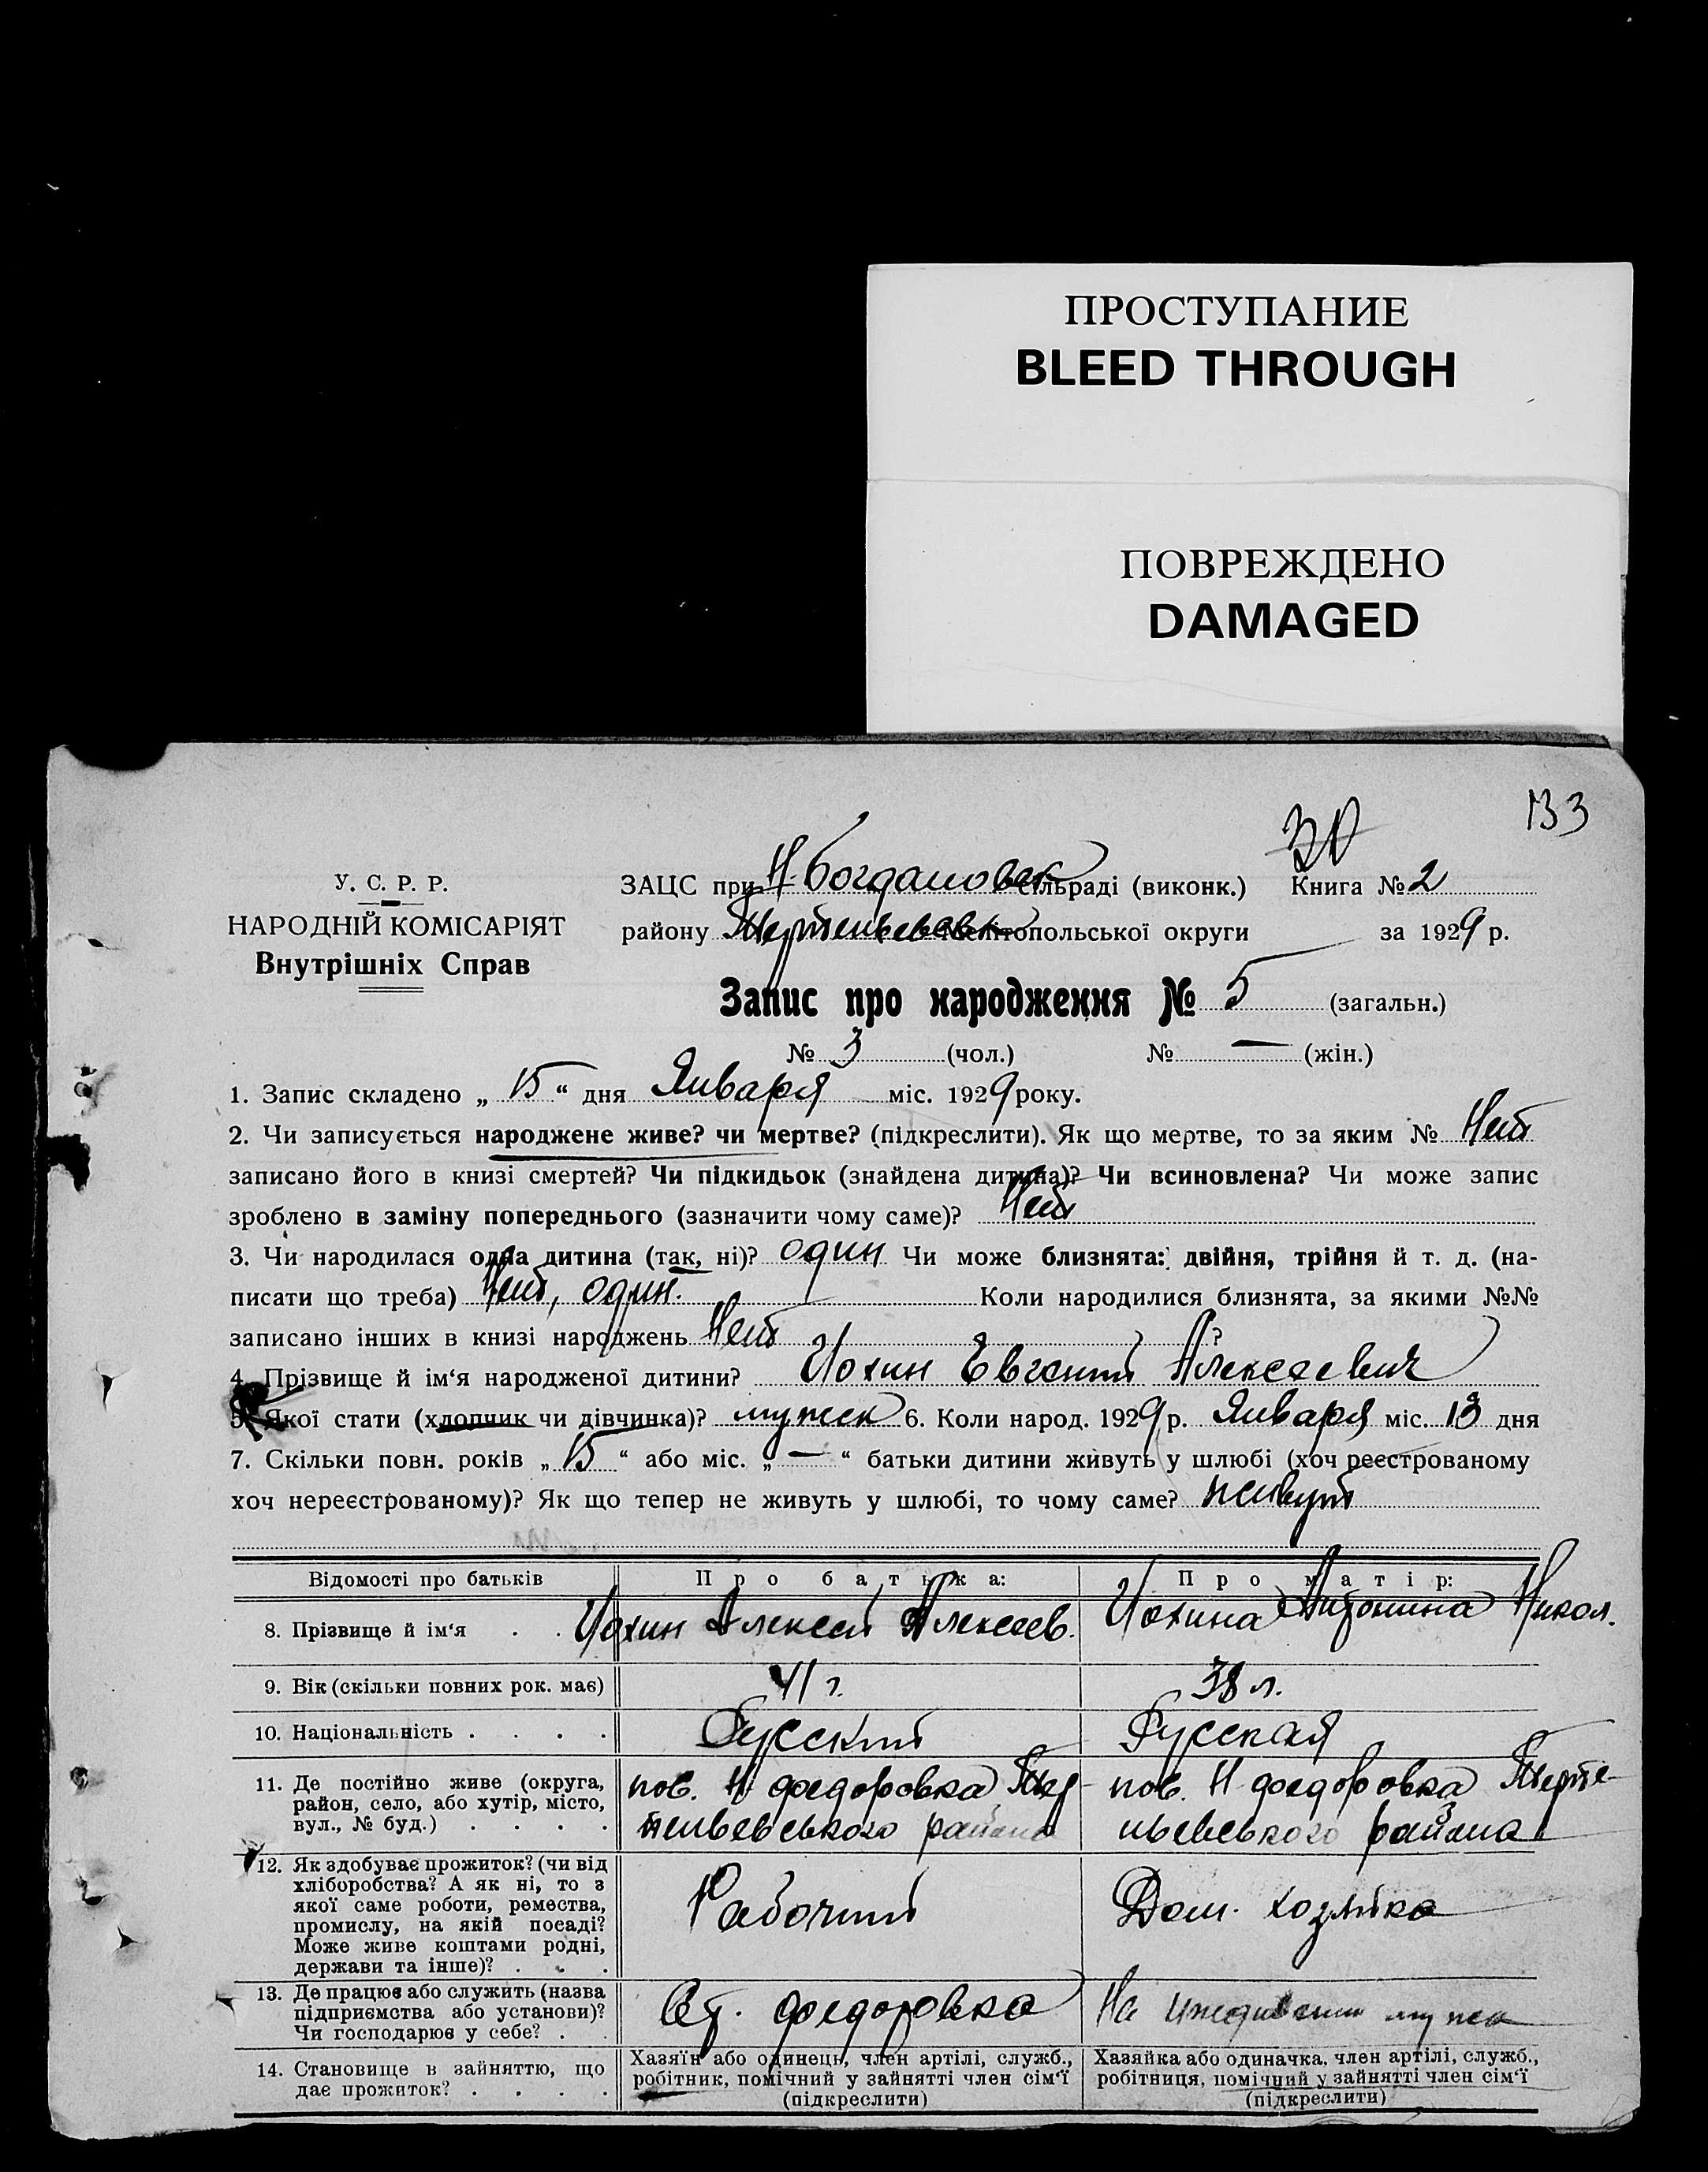 ПРОСТУПАНИЕ
BLEED THROUGH
ПОВРЕЖДЕНО
DAMAGED
133
30
У. С. Р. Р.
НАРОДНІЙ КОМІСАРІЯТ
Внутрішніх Справ
ЗАЦС при Н-Богдановск сільраді (виконк.) Книга № 2
району Терпеньевськ Мелітопольської округи за 1929 р.
Запис про народження № 5 (загальн.)
№ 3 (чол.) № — (жін.)
1. Запис складено „ 15 “ дня Января міс. 1929 року.
2. Чи записується народжене живе? чи мертве? (підкреслити). Як що мертве, то за яким № Нет
записано його в книзі смертей? Чи підкидьок (знайдена дитина)? Чи всиновлена? Чи може запис
зроблено в заміну попереднього (зазначити чому саме)? Нет
3. Чи народилася одна дитина (так, ні)? один Чи може близнята: двійня, трійня й т. д. (на-
писати що треба) Нет, один. Коли народилися близнята, за якими №№
записано інших в книзі народжень Нет ?
4. Прізвище й ім‘я народженої дитини? Иохин Евгений Алексеевич
5. Якої стати (хлопчик чи дівчинка)? мужск 6. Коли народ. 1929 р. Января міс. 13 дня
7. Скільки повн. років „ 15 “ або міс. „ — “ батьки дитини живуть у шлюбі (хоч реєстрованому
хоч нереєстрованому)? Як що тепер не живуть у шлюбі, то чому саме? живут
Відомості про батьків Про батька: Про матір:
8. Прізвище й ім‘я . . Иохин Алексей Алексеев. Иохина Антонина Никол.
9. Вік (скільки повних рок. має) 41 г. 38 л.
10. Національність . . . . Русский Русская
11. Де постійно живе (округа,
район, село, або хутір, місто,
вул., № буд.) . . . .
пос. Н федоровка Тер-
пеньевського района
пос. Н федоровка Терпе-
ньевського района
12. Як здобуває прожиток? (чи від
хліборобства? А як ні, то з
якої саме роботи, ремества,
промислу, на якій посаді?
Може живе коштами родні,
держави та інше)? . . .
Рабочий
Дом. хозяйка
13. Де працює або служить (назва
підприємства або установи)?
Чи господарює у себе? . .
Ст. федоровка
На иждивении мужа
14. Становище в зайняттю, що
дає прожиток? . . . .
Хазяїн або одинець, член артілі, служб.,
робітник, помічний у зайнятті член сім‘ї
(підкреслити)
Хазяйка або одиначка, член артілі, служб.,
робітниця, помічний у зайнятті член сім‘ї
(підкреслити)